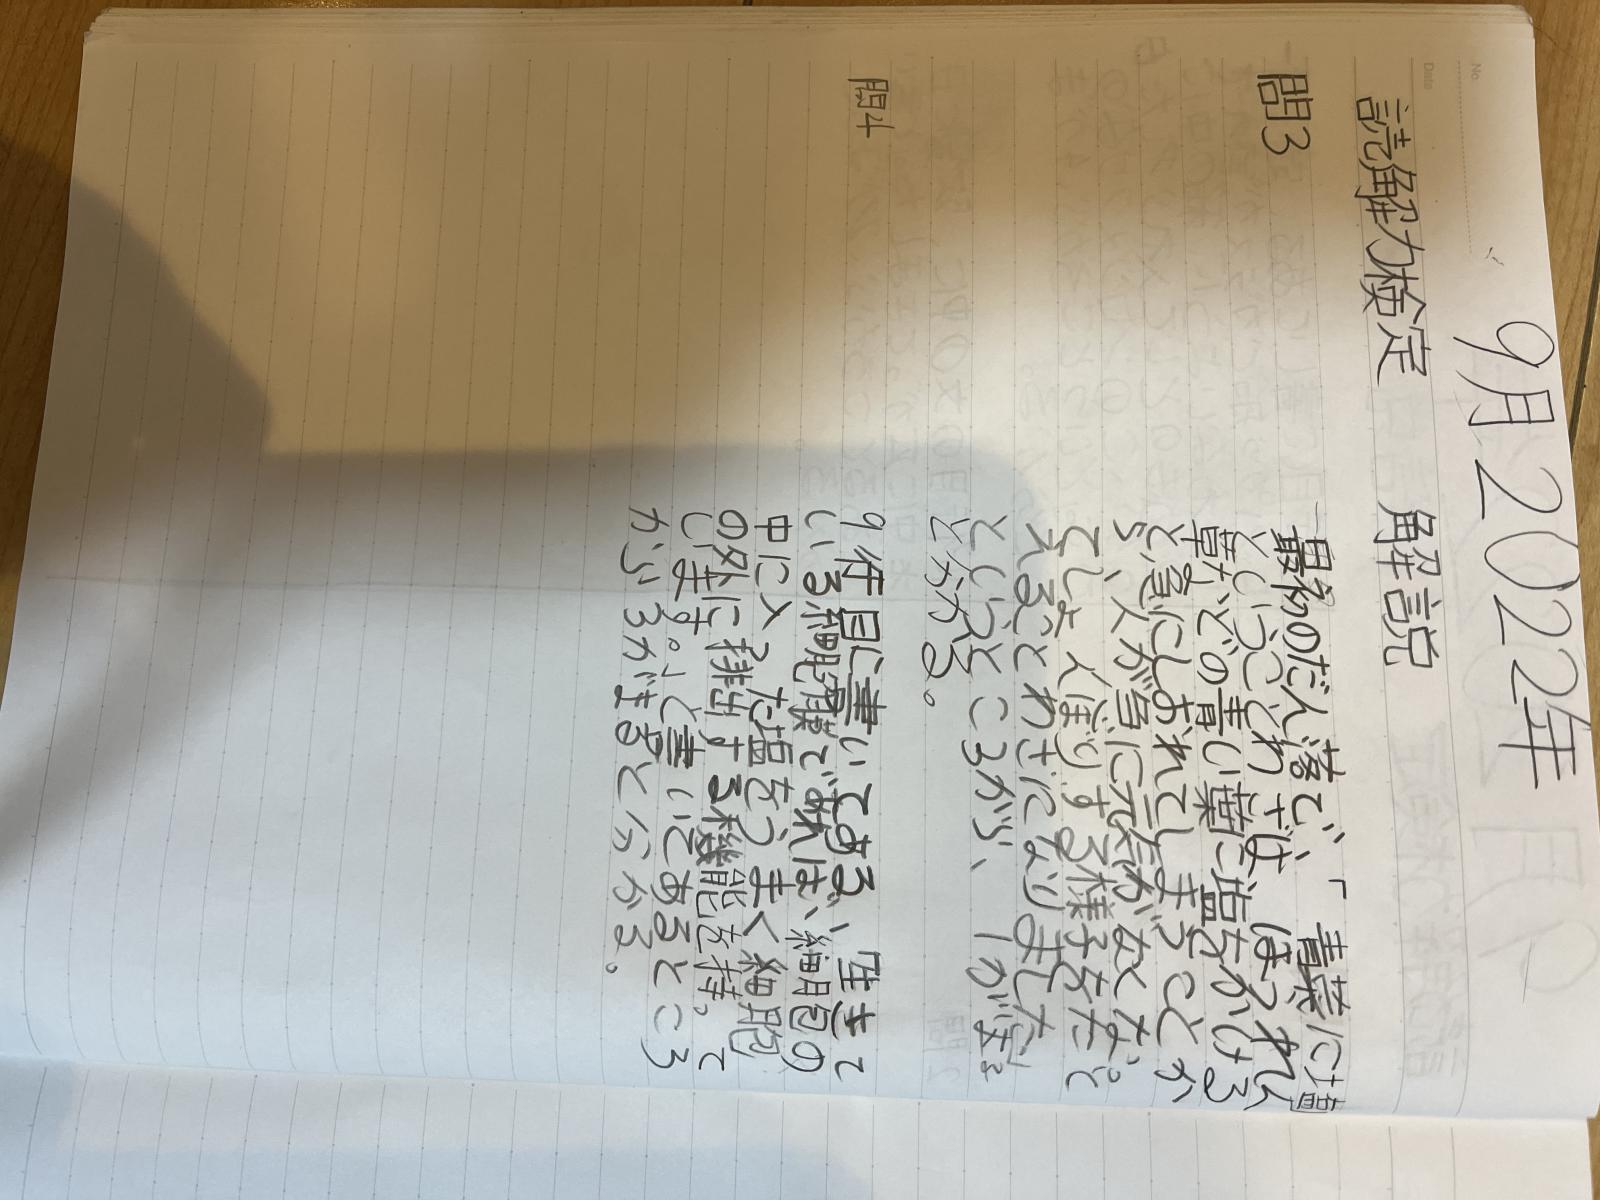 9月2022年
読解力検定 解説
問3 最初のだん落で、「青菜に塩
ということわざは、ほうれん
草などの青い葉に塩をかける
と急にしおれてしまうことか
ら、人が急に元気がなくなっ
てしょんぼりする様子をたと
えることわざになりました。」
というところから、1がまる
と分かる。
問4 9行目に書いてある、生きて
いる細胞膜であれば、細胞の
中に入った塩をうまく細胞
の外に排出する機能を持って
います。」と書いてあるところ
から3がまると分かる。
No.
Date